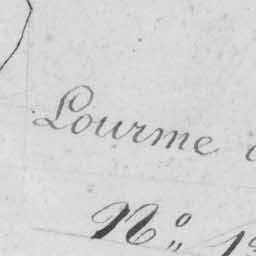 Lourme
N°